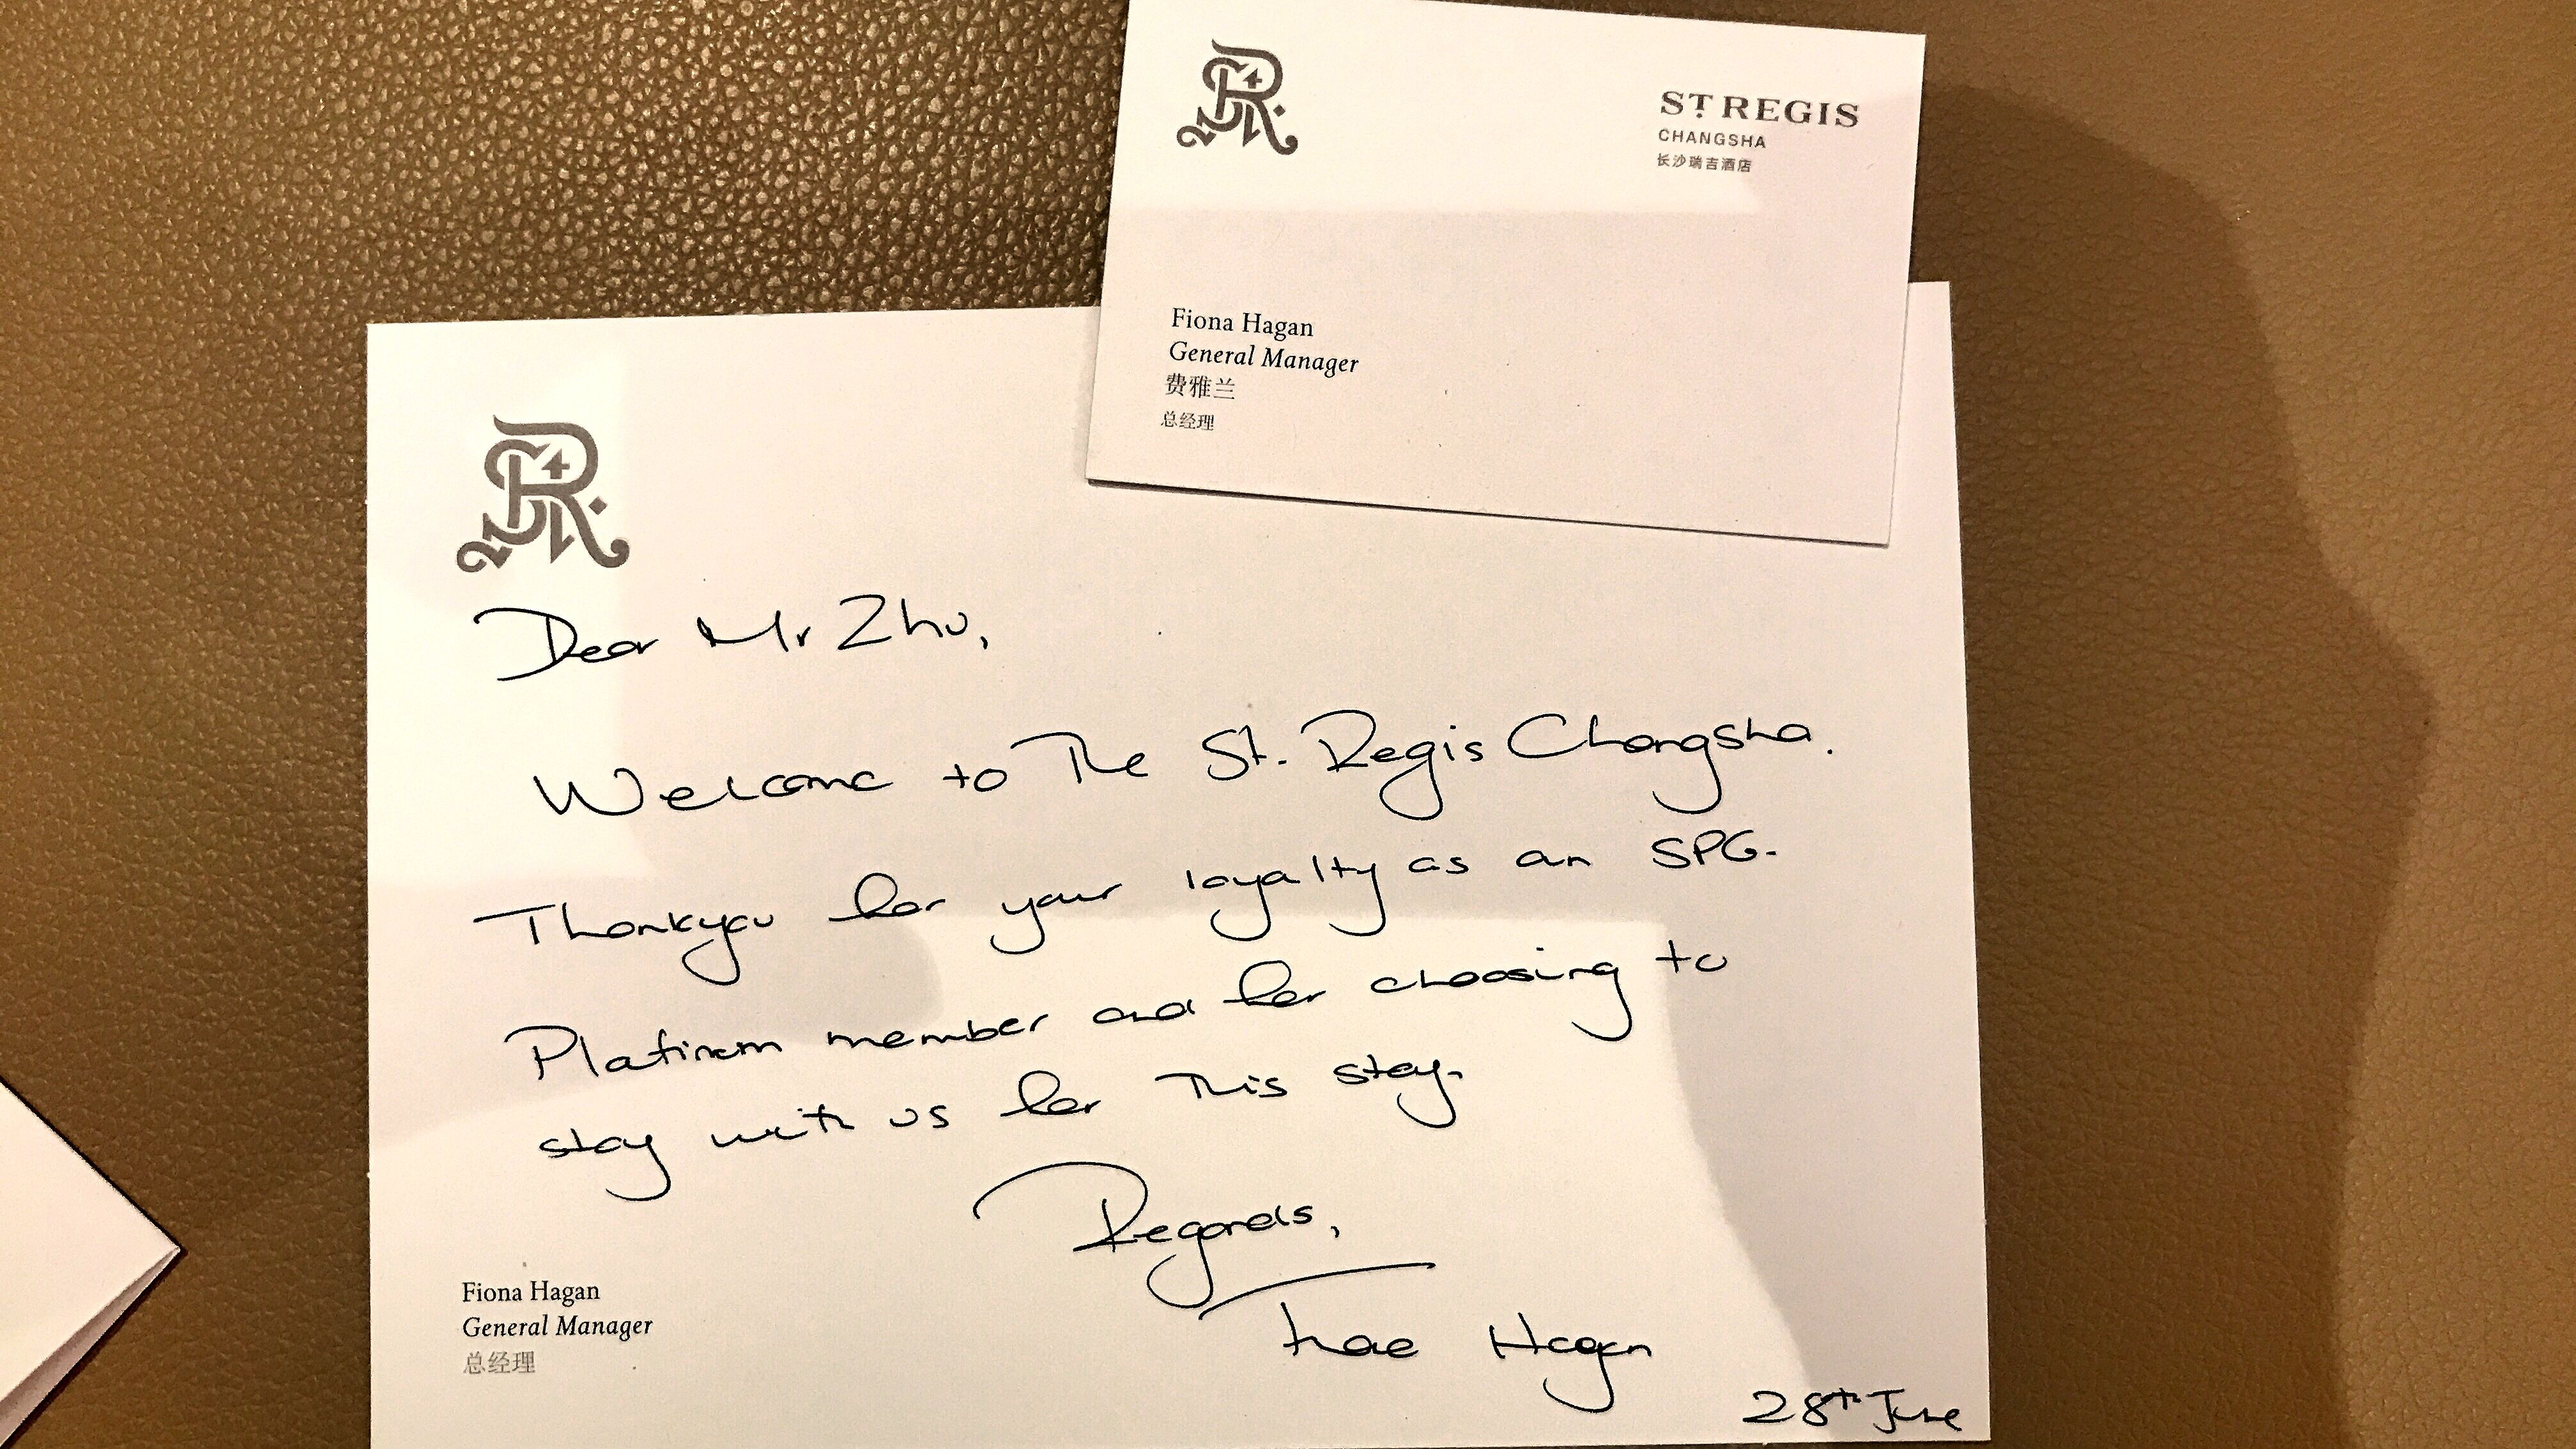 ST REGIS
CHANGSHA
长沙瑞吉酒店
Fiona Hagan
General Manager
费雅兰
总经理
Dear Mr Zhu,
Welcome to The St. Regis Changsha.
Thankyou for your loyalty as an SPG
Platinum member and for choosing to
stay with us for this stay.
Regards,
Hagan
28th June
Fiona Hagan
General Manager
总经理